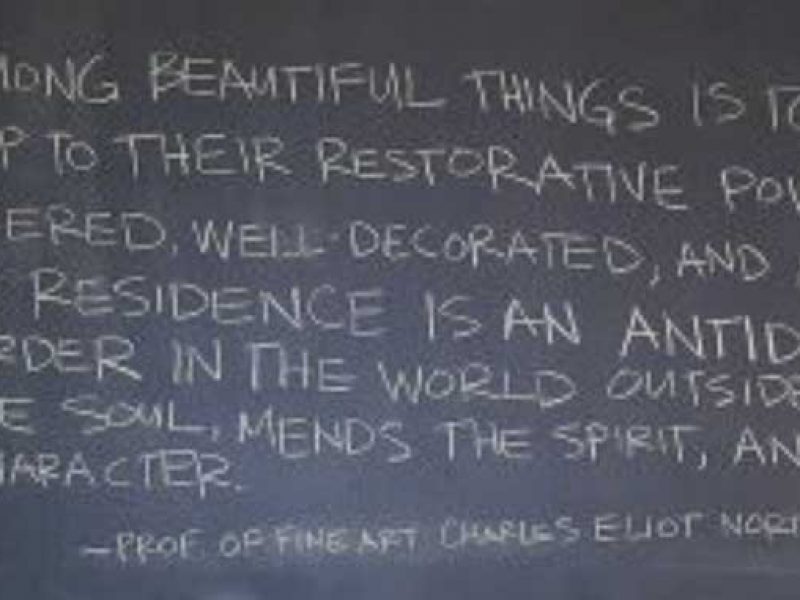 MONG BEAUTIFUL THINGS IS TO
P TO THEIR RESTORATIVE POW
ERED, WELL-DECORATED, AND
RESIDENCE IS AN ANTID
RDER IN THE WORLD OUTSIDE
E SOUL, MENDS THE SPIRIT, AN
HARACTER.
—PROF. OF FINE ART CHARLES ELIOT NORT